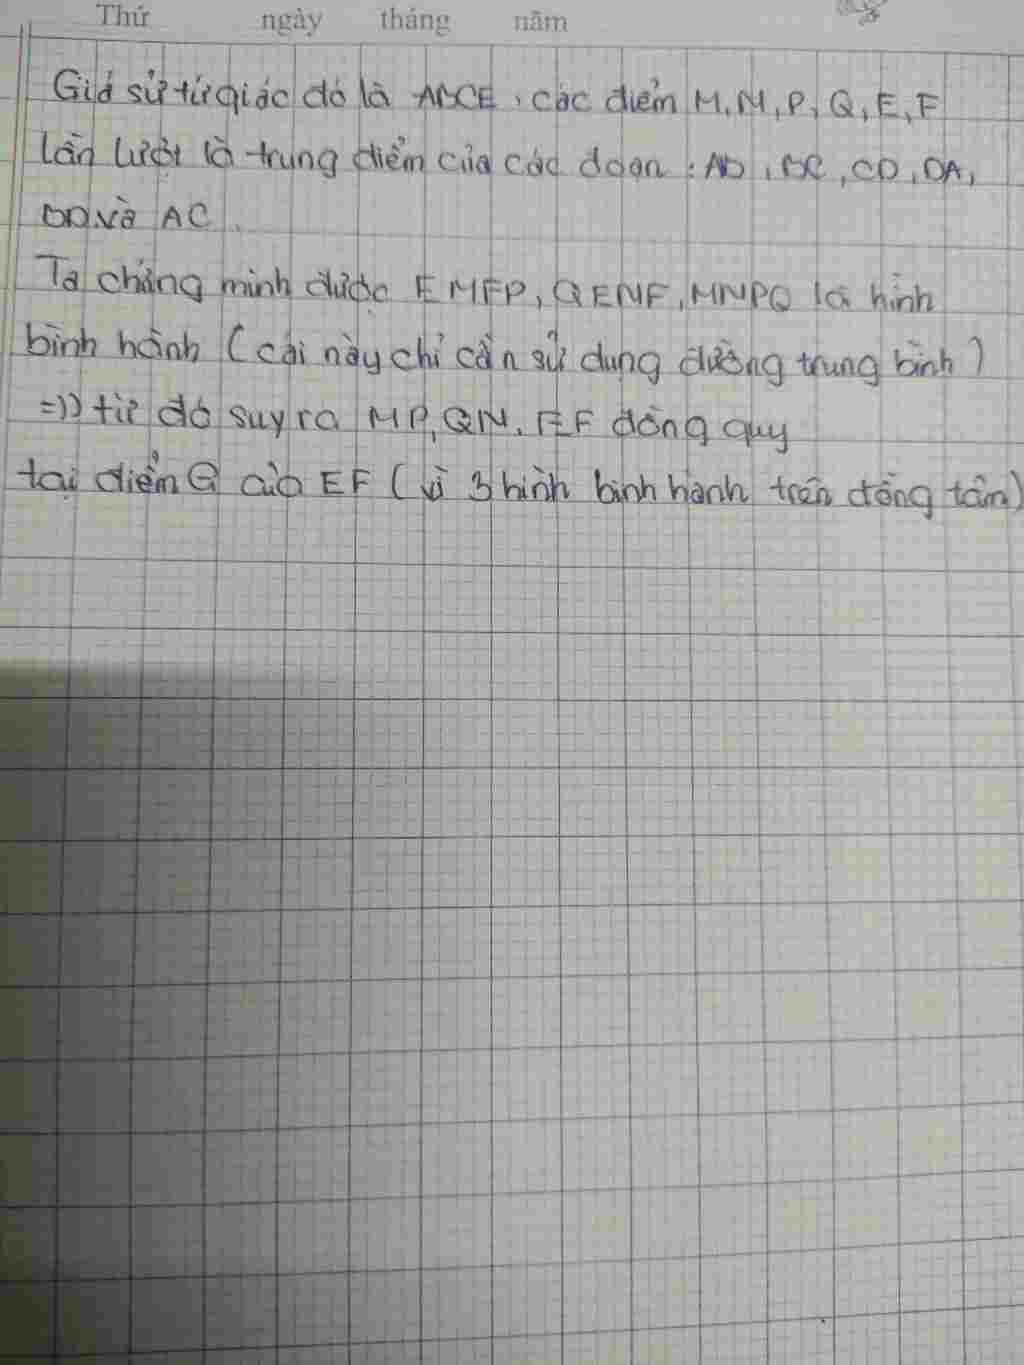 Thứ ngày tháng năm
Giả sử tứ giác đó là ABCE, các điểm M, N, P, Q, E, F
lần lượt là trung điểm của các đoạn: AB, BC, CD, DA,
BD và AC.
Ta chứng minh được EMFP, QENF, MNPQ là hình
bình hành (cái này chỉ cần sử dụng đường trung bình)
=)) từ đó suy ra MP, QN, EF đồng quy
tại điểm G của EF (vì 3 hình bình hành trên đồng tâm)